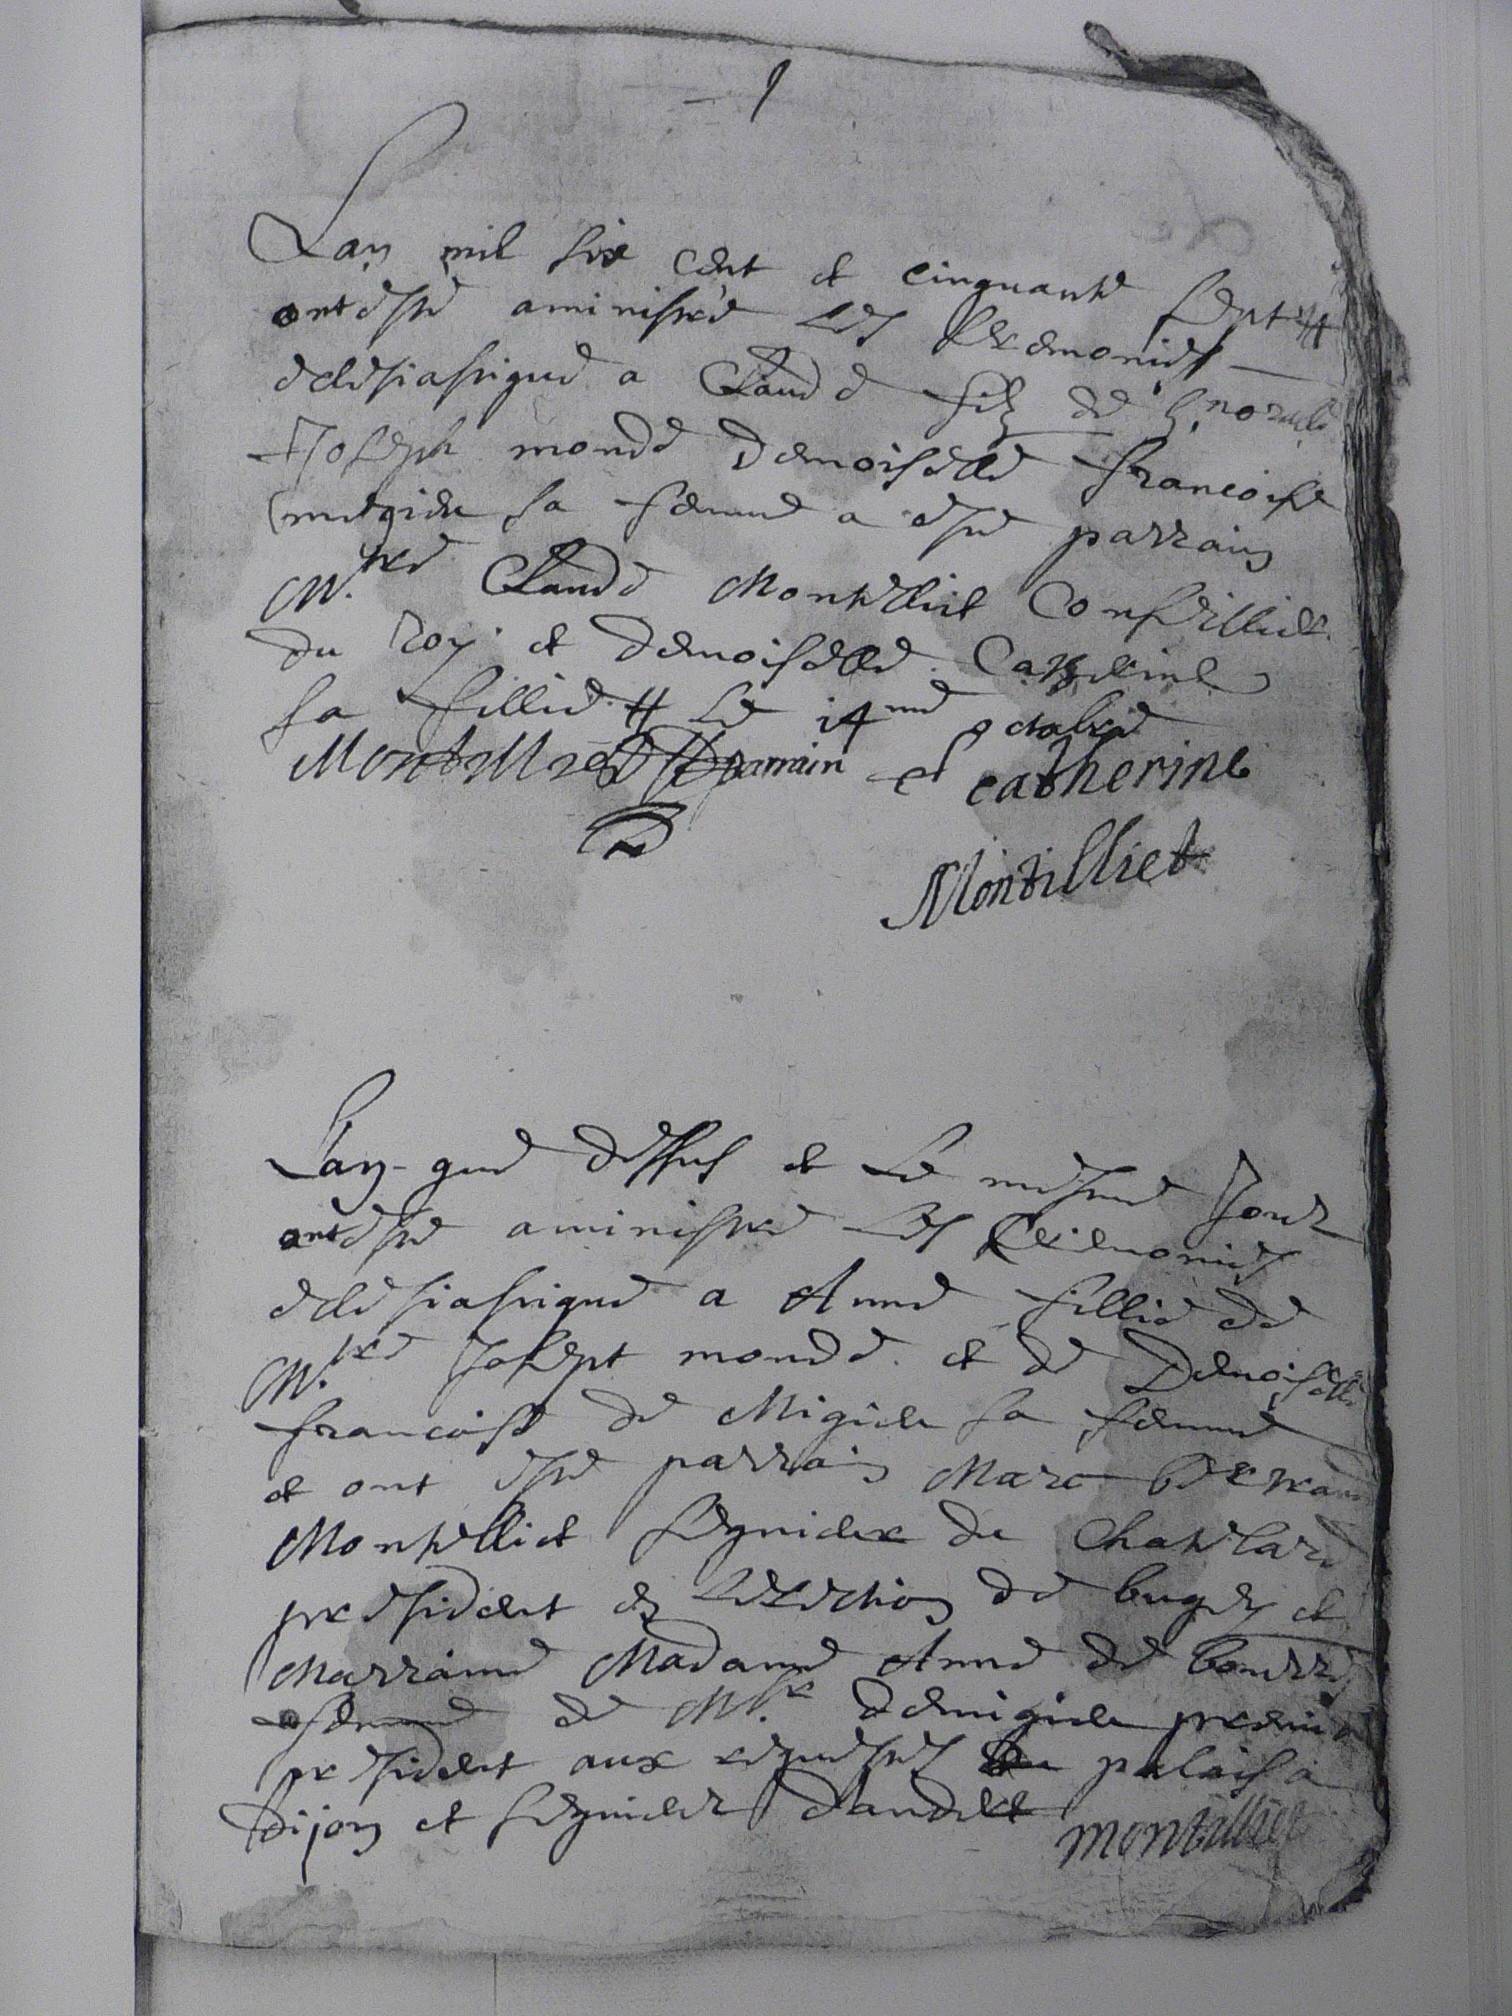 1
Lan mil six cent et cinquante sept
ont esté aministré les seremonies
eclesiastique a Claude filz de honorable
Joseph monde demoiselle francoise
migieu sa femme a esté parrain
M.tre Claude Montillict Conseillier
du roy et demoiselle Catherine
sa fillie le 14me octobre
parrain et catherine
Montilliet
Lan que dessus et le mesme Jour
ont esté aministré les seremonies
eclesiastique a Anne fillie de
M.tre Josept monde et de demoiselle
francoise de Migieu sa femme
et ont esté parrain Marc
Montilliet segnieur du Chatelard
president en lelection de bugey et
Marraine Madame Anne de
femme de Mr. demigieu premier
president aux requestes du palais a
dijon et segnieur
montilliet